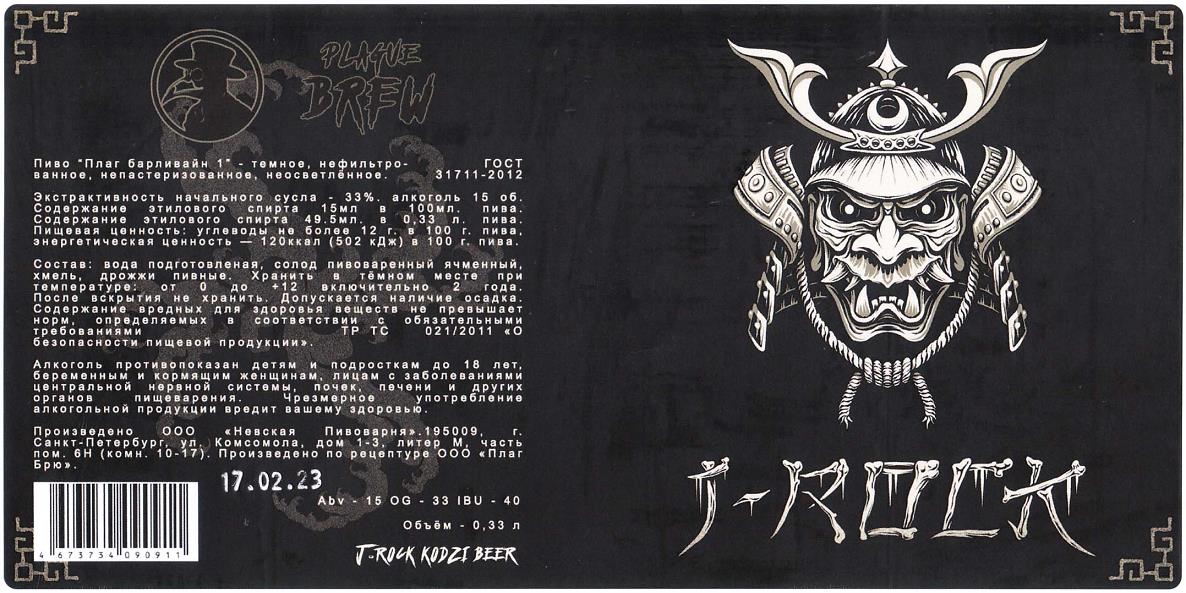 PLAGUE
BREW
Пиво "Плаг барливайн 1" - темное, нефильтро- ГОСТ
ванное, непастеризованное, неосветлённое. 31711-2012
Экстрактивность начального сусла - 33%. алкоголь 15 об.
Содержание этилового спирта 15мл в 100мл. пива.
Содержание этилового спирта 49.5мл. в 0,33 л. пива.
Пищевая ценность: углеводы не более 12 г. в 100 г. пива,
энергетическая ценность — 120ккал (502 кДж) в 100 г. пива.
Состав: вода подготовленая, солод пивоваренный ячменный,
хмель, дрожжи пивные. Хранить в тёмном месте при
температуре: от 0 до +12 включительно 2 года.
После вскрытия не хранить. Допускается наличие осадка.
Содержание вредных для здоровья веществ не превышает
норм, определяемых в соответствии с обязательными
требованиями ТР ТС 021/2011 «О
безопасности пищевой продукции».
Алкоголь противопоказан детям и подросткам до 18 лет,
беременным и кормящим женщинам, лицам с заболеваниями
центральной нервной системы, почек, печени и других
органов пищеварения. Чрезмерное употребление
алкогольной продукции вредит вашему здоровью.
Произведено ООО «Невская Пивоварня».195009, г.
Санкт-Петербург, ул. Комсомола, дом 1-3, литер М, часть
пом. 6Н (комн. 10-17). Произведено по рецептуре ООО «Плаг
Брю».
17.02.23
Abv - 15 OG - 33 IBU - 40
Объём - 0,33 л
4 673734 090911
J-ROCK KODZI BEER
J-ROCK